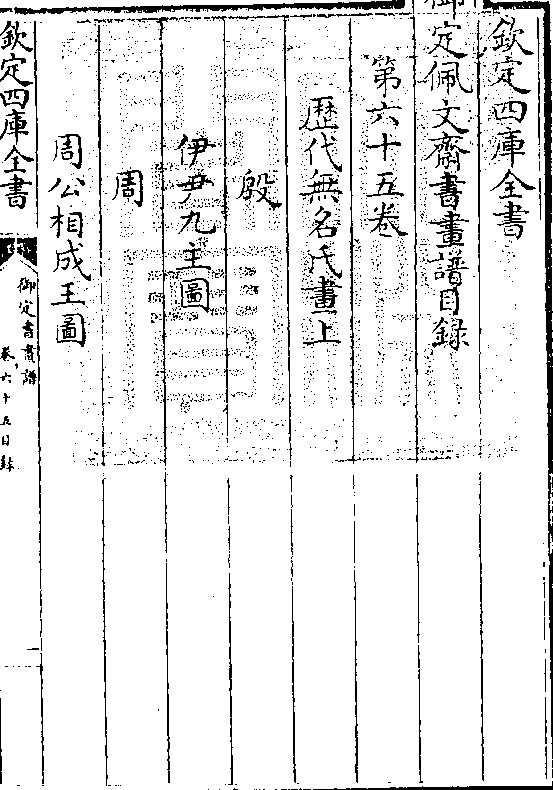 欽定四庫全書
御定佩文齋書畫譜目錄
第六十五卷
歷代無名氏畫上
殷
伊尹九主圖
周
周公相成王圖
欽定四庫全書
御定書畫譜
卷六十五目錄
一